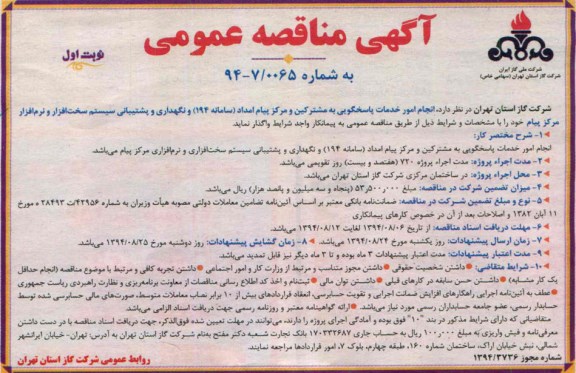 آگهی مناقصه عمومی
نوبت اول
به شماره ۹۴-۷/۰۰۶۵
شرکت ملی گاز ایران
شرکت گاز استان تهران (سهامی خاص)
شرکت گاز استان تهران در نظر دارد، انجام امور خدمات پاسخگویی به مشترکین و مرکز پیام امداد (سامانه ۱۹۴) و نگهداری و پشتیبانی سیستم سخت‌افزار و نرم‌افزار
مرکز پیام خود را با مشخصات و شرایط ذیل از طریق مناقصه عمومی به پیمانکار واجد شرایط واگذار نماید.
۱- شرح مختصر کار:
انجام امور خدمات پاسخگویی به مشترکین و مرکز پیام امداد (سامانه ۱۹۴) و نگهداری و پشتیبانی سیستم سخت‌افزاری و نرم‌افزاری مرکز پیام می‌باشد.
۲- مدت اجراء پروژه: مدت اجراء پروژه ۷۲۰ (هفتصد و بیست) روز تقویمی می‌باشد.
۳- محل اجراء پروژه: در ساختمان مرکزی شرکت گاز استان تهران می‌باشد.
۴- میزان تضمین شرکت در مناقصه: مبلغ ۵۳٫۵۰۰٫۰۰۰ (پنجاه و سه میلیون و پانصد هزار) ریال می‌باشد.
۵- نوع و مبلغ تضمین شرکت در مناقصه: ضمانت‌نامه بانکی معتبر بر اساس آئین‌نامه تضامین معاملات دولتی مصوبه هیأت وزیران به شماره ۴۲۹۵۶ت ۲۸۴۹۳ ه مورخ
۱۱ آبان ۱۳۸۲ و اصلاحات بعد از آن در خصوص کارهای پیمانکاری
۶- مهلت دریافت اسناد مناقصه: از تاریخ ۱۳۹۴/۰۸/۰۶ لغایت ۱۳۹۴/۰۸/۱۲ می‌باشد.
۷- زمان ارسال پیشنهادات: روز یکشنبه مورخ ۱۳۹۴/۰۸/۲۴ می‌باشد. ۸- زمان گشایش پیشنهادات: روز دوشنبه مورخ ۱۳۹۴/۰۸/۲۵ می‌باشد.
۹- مدت اعتبار پیشنهادات: مدت اعتبار پیشنهادات ۳ ماه بوده و تا ۳ ماه دیگر نیز قابل تمدید می‌باشد.
۱۰- شرایط متقاضی: داشتن شخصیت حقوقی داشتن مجوز متناسب و مرتبط از وزارت کار و امور اجتماعی داشتن تجربه کافی و مرتبط با موضوع مناقصه (انجام حداقل
یک کار مشابه) داشتن حسن سابقه در کارهای قبلی داشتن توان مالی ثبت‌نام و اخذ کد اطلاع رسانی مناقصات از معاونت برنامه‌ریزی و نظارت راهبردی ریاست جمهوری
عطف به آئین‌نامه اجرایی راهکارهای افزایش ضمانت اجرایی و تقویت حسابرسی، انعقاد قراردادهای بیش از ۱۰ برابر نصاب معاملات متوسط، صورت‌های مالی حسابرسی شده توسط
حسابدار رسمی، عضو جامعه حسابداران رسمی مورد نیاز می‌باشد. ارائه گواهینامه معتبر و روزنامه رسمی جهت دریافت اسناد الزامی می‌باشد.
متقاضیانی که دارای شرایط مذکور در بند "۱۰" فوق بوده و آمادگی اجرای پروژه را دارند، می‌توانند در مهلت تعیین شده فوق‌الذکر، جهت دریافت اسناد مناقصه با در دست داشتن
معرفی‌نامه و فیش واریزی به مبلغ ۱۰۰٫۰۰۰ ریال به حساب جاری ۱۷۰۳۳۲۶۸۷ بانک تجارت شعبه دکتر مفتح بنام شرکت گاز استان تهران به آدرس: تهران- خیابان ایرانشهر
شمالی، نبش خیابان اراک، ساختمان شماره ۱۶۰، طبقه چهارم، بلوک ۷، امور قراردادها مراجعه نمایند.
شماره مجوز ۱۳۹۴/۳۷۳۶
روابط عمومی شرکت گاز استان تهران